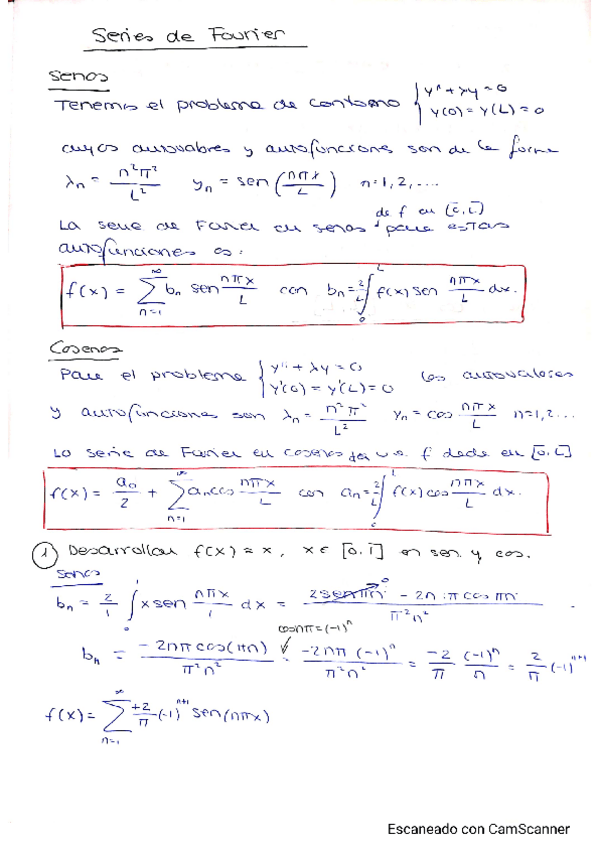 Series de Fourier
Senos
Tenemos el problema de contorno { y'' + λy = 0
y(0) = y(L) = 0
cuyos autovalores y autofunciones son de la forma
λn = n²π²/L² yn = sen(nπx/L) n = 1, 2, ....
de f en [0, L]
La serie de Fourier en senos para estas
autofunciones es:
f(x) = ∑_{n=1}^{∞} bn sen nπx/L con bn = 2/L ∫_0^L f(x) sen nπx/L dx.
Cosenos
Para el problema { y'' + λy = 0
y'(0) = y'(L) = 0 los autovalores
y autofunciones son λn = n²π²/L² yn = cos nπx/L n = 1, 2...
La serie de Fourier en cosenos f dada en [0, L]
f(x) = a0/2 + ∑_{n=1}^{∞} an cos nπx/L con an = 2/L ∫_0^L f(x) cos nπx/L dx.
1 Desarrollar f(x) = x, x ∈ [0, 1] en sen y cos.
Senos
bn = 2/1 ∫_0^1 x sen nπx/1 dx = (2 sen πn - 2n·π cos πn)/(π²n²)
0
cos nπ = (-1)^n
bn = -2nπ cos(πn)/(π²n²) = -2nπ (-1)^n/(π²n²) = -2/π (-1)^n/n = 2/π (-1)^{n+1}
f(x) = ∑_{n=1}^{∞} +2/π (-1)^{n+1} sen(nπx)
Escaneado con CamScanner